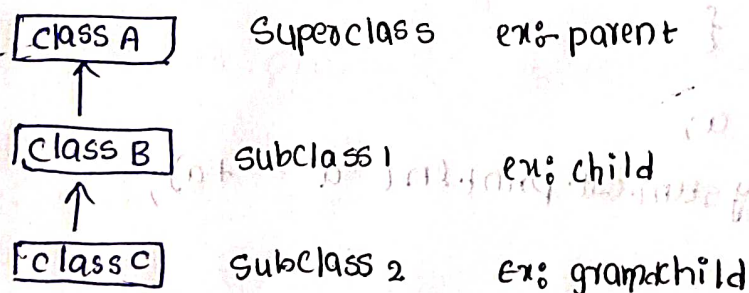 class A superclass ex:- parent
class B subclass 1 ex: child
class C subclass 2 Ex: grandchild